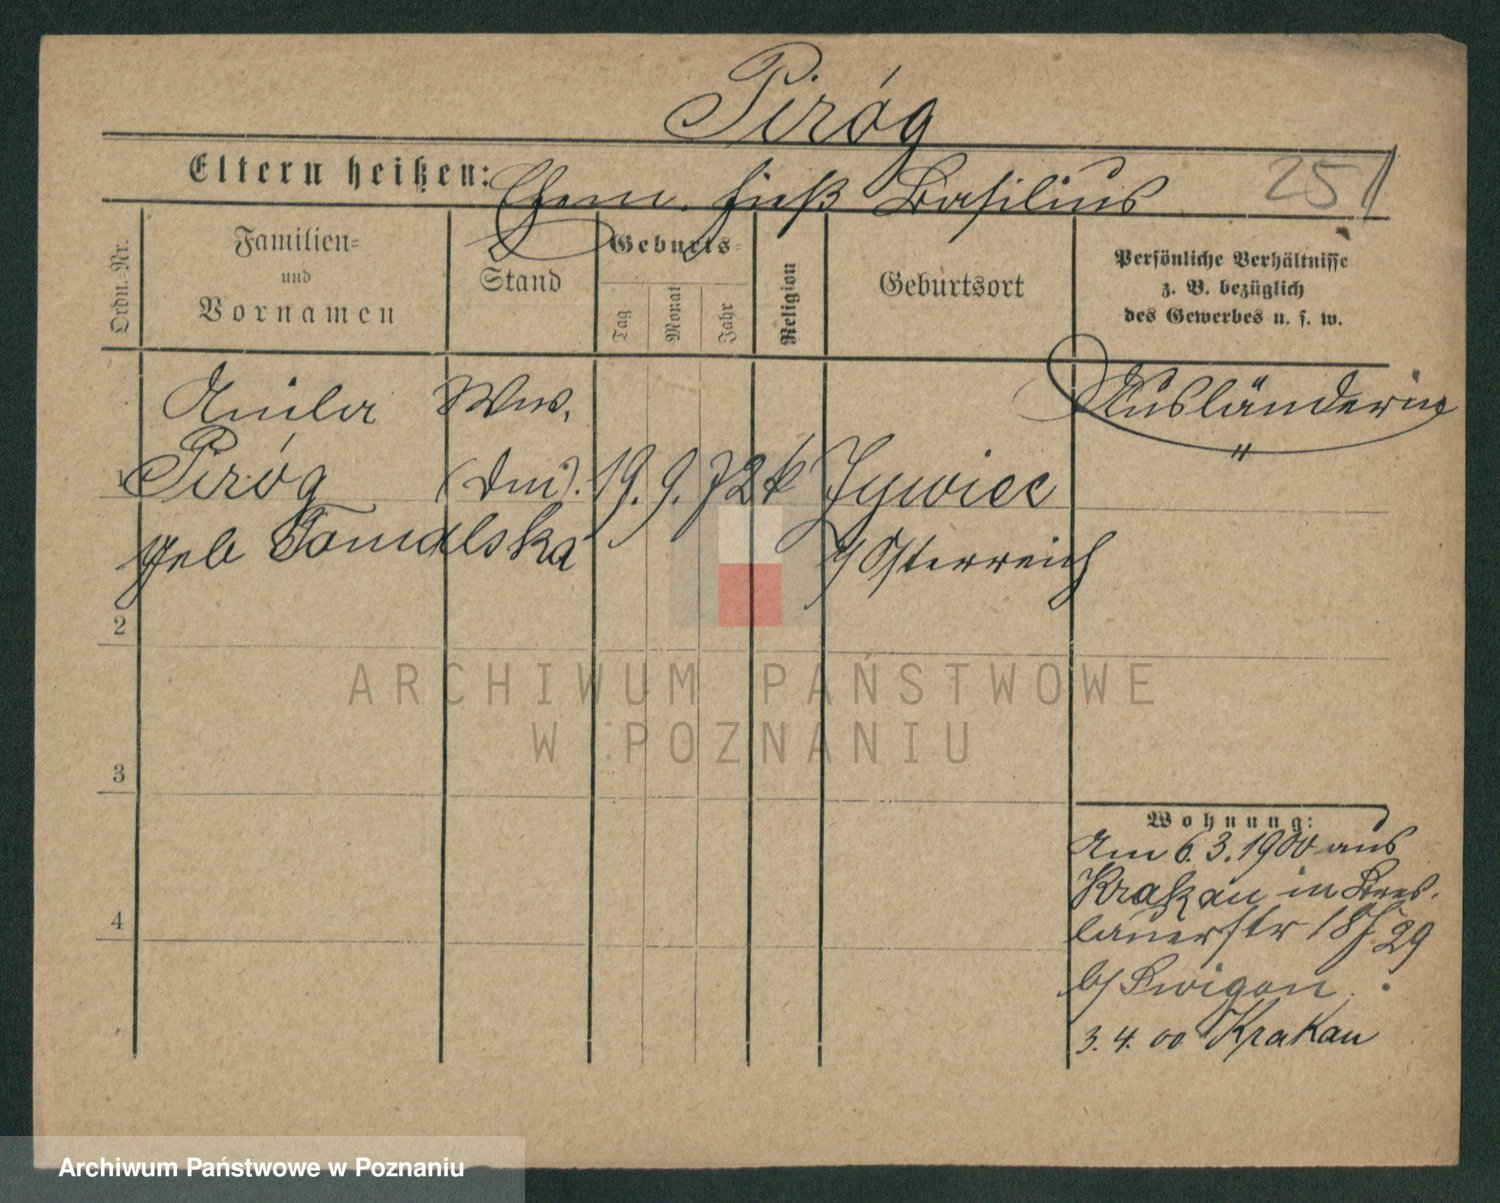 Piróg
251
Eltern heißen: Ehem. hieß Basilius
Ordn.-Nr.
Familien-
und
Vornamen
Stand
Geburts-
Tag
Monat
Jahr
Religion
Geburtsort
Persönliche Verhältnisse
z. B. bezüglich
des Gewerbes u. s. w.
Wwe.
Ausländerin
1 Piróg 19. 9. 72 k Zywiec
geb Tomalska
Österreich
2
3
4
Wohnung:
Am 6.3.1900 aus
Krakau in Bres-
lauerstr 18 29
b/
3. 4. 00 Krakau
ARCHIWUM PAŃSTWOWE
W POZNANIU
Archiwum Państwowe w Poznaniu